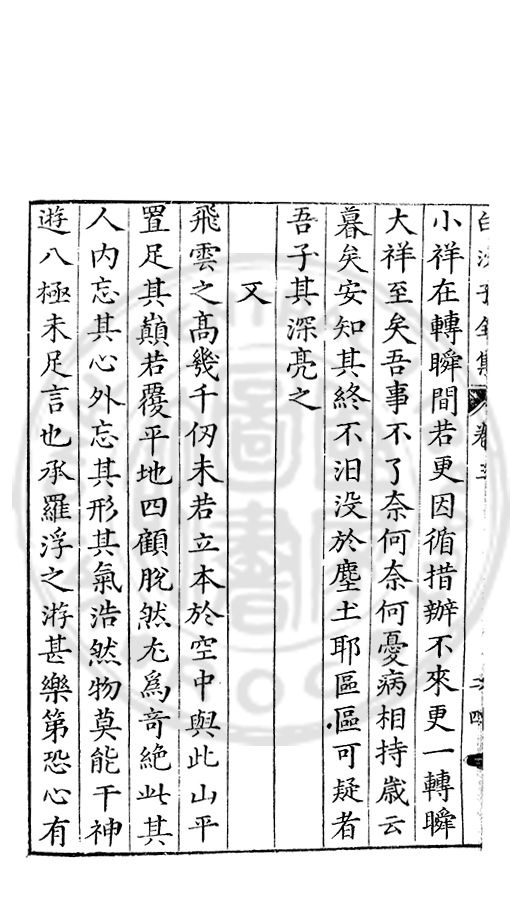 白沙子全集 卷三
小祥在轉瞬間若更因循措辦不來更一轉瞬
大祥至矣吾事不了奈何奈何憂病相持歲云
暮矣安知其終不汨没於塵土耶區區可疑者
吾子其深亮之
又
飛雲之高幾千仞未若立本於空中與此山平
置足其巔若覆平地四顧脫然尤爲奇絶此其
人内忘其心外忘其形其氣浩然物莫能干神
遊八極未足言也承羅浮之游甚樂第恐心有